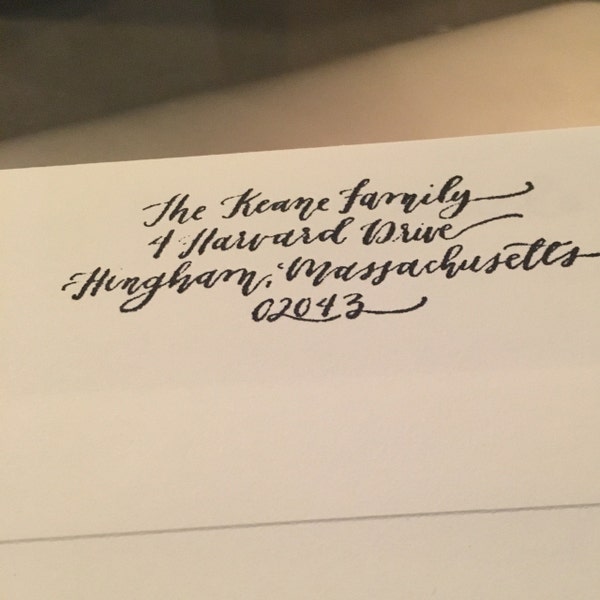 The Keane Family
4 Harvard Drive
Hingham, Massachusetts
02043